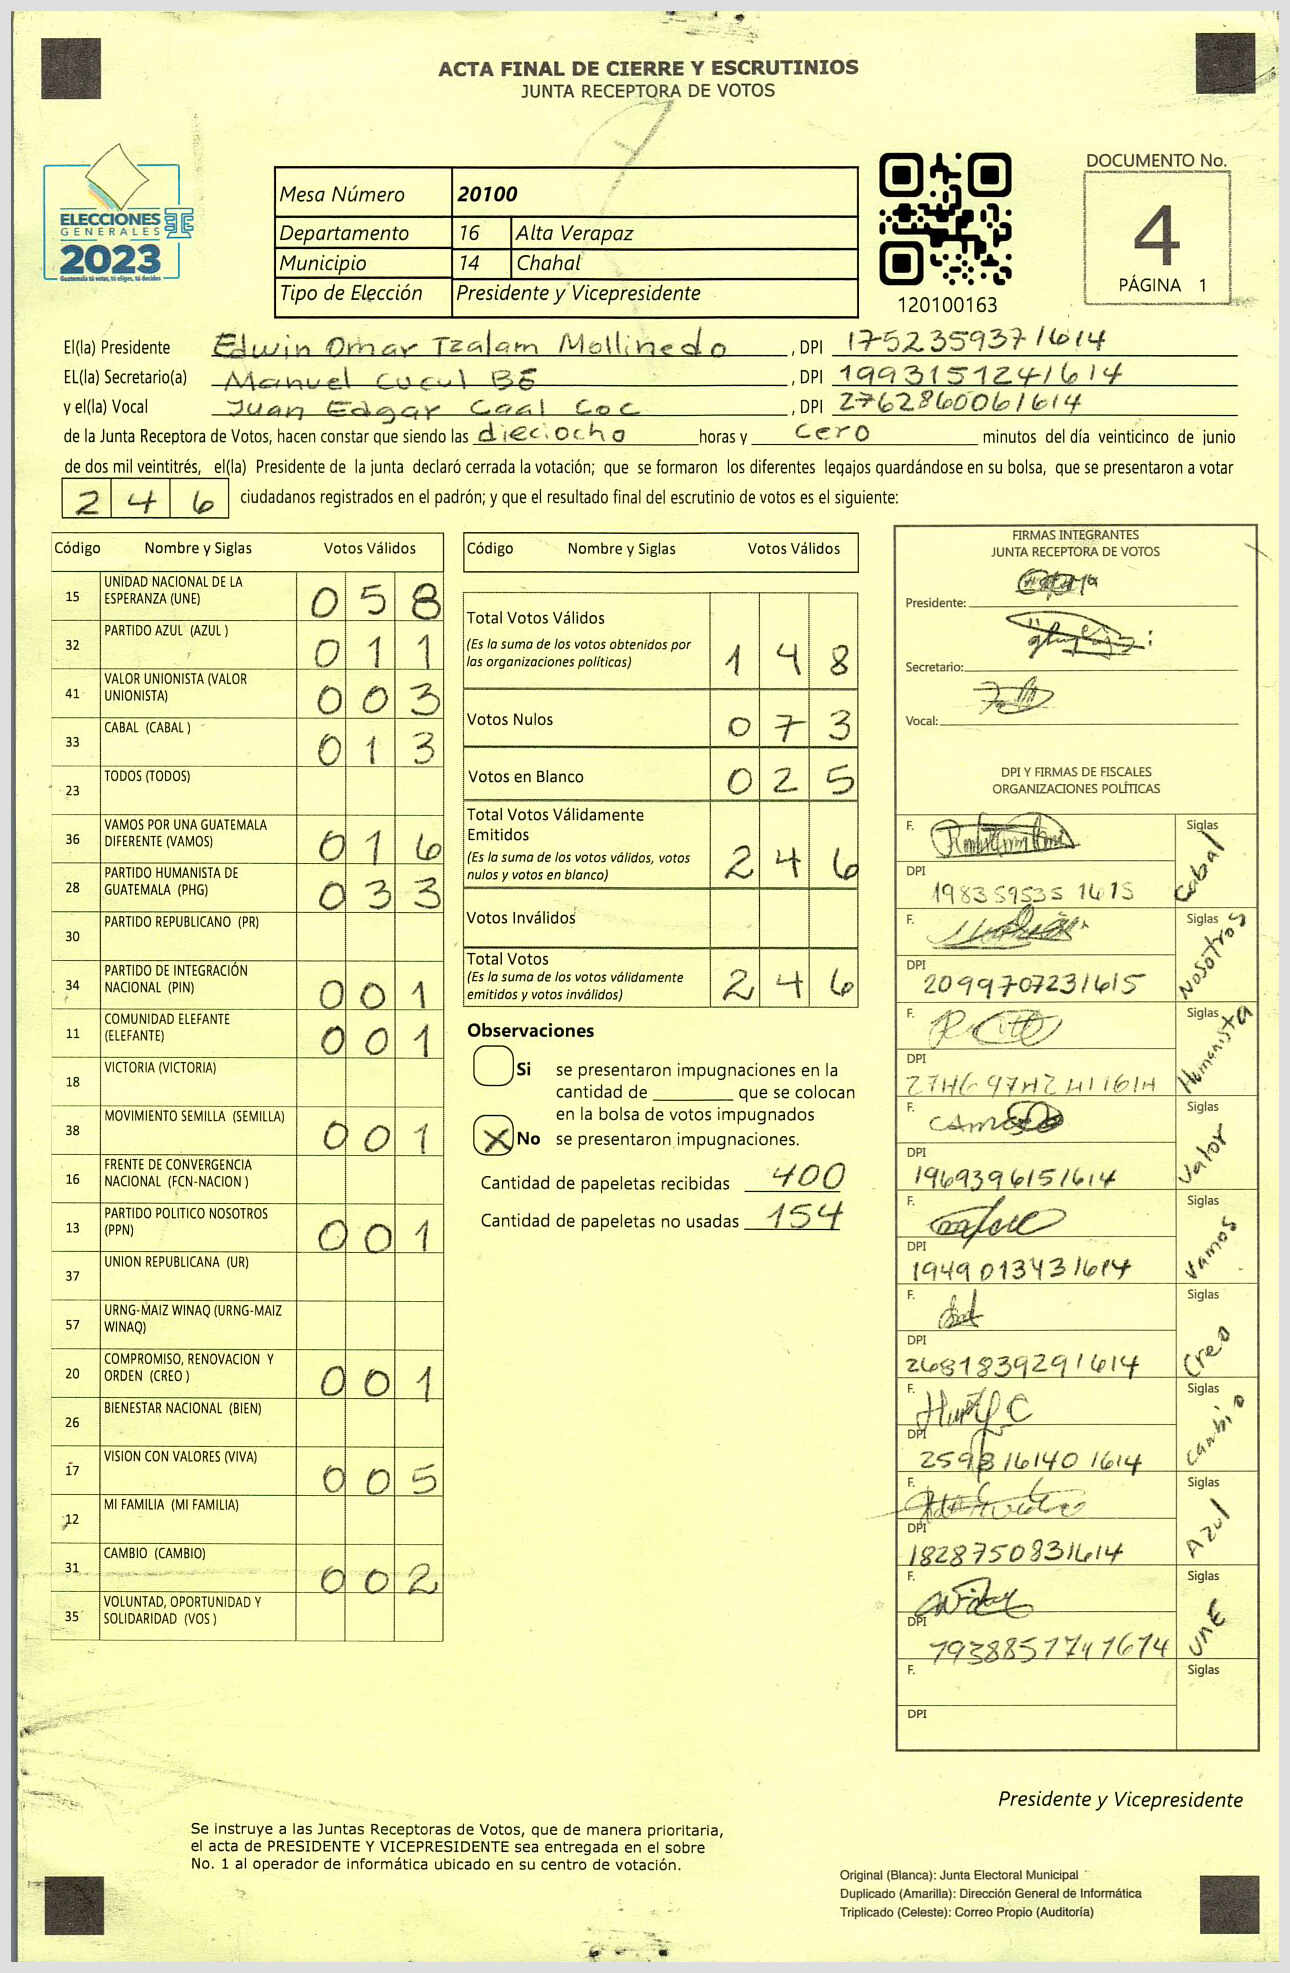 ACTA FINAL DE CIERRE Y ESCRUTINIOS
JUNTA RECEPTORA DE VOTOS
ELECCIONES
GENERALES
2023
Guatemala tú votas, tú eliges, tú decides
Mesa Número 20100
Departamento 16 Alta Verapaz
Municipio 14 Chahal
Tipo de Elección Presidente y Vicepresidente
120100163
DOCUMENTO No.
4
PÁGINA 1
El(la) Presidente Edwin Omar Tzalam Mollinedo, DPI 1752359371614
EL(la) Secretario(a) Manuel Cucul Bé, DPI 1993151241614
y el(la) Vocal Juan Edgar Caal Coc, DPI 2762860061614
de la Junta Receptora de Votos, hacen constar que siendo las dieciocho horas y cero minutos del día veinticinco de junio
de dos mil veintitrés, el(la) Presidente de la junta declaró cerrada la votación; que se formaron los diferentes legajos guardándose en su bolsa, que se presentaron a votar
246 ciudadanos registrados en el padrón; y que el resultado final del escrutinio de votos es el siguiente:
Código Nombre y Siglas Votos Válidos
15 UNIDAD NACIONAL DE LA ESPERANZA (UNE) 058
32 PARTIDO AZUL (AZUL ) 011
41 VALOR UNIONISTA (VALOR UNIONISTA) 003
33 CABAL (CABAL ) 013
23 TODOS (TODOS)
36 VAMOS POR UNA GUATEMALA DIFERENTE (VAMOS) 016
28 PARTIDO HUMANISTA DE GUATEMALA (PHG) 033
30 PARTIDO REPUBLICANO (PR)
34 PARTIDO DE INTEGRACIÓN NACIONAL (PIN) 001
11 COMUNIDAD ELEFANTE (ELEFANTE) 001
18 VICTORIA (VICTORIA)
38 MOVIMIENTO SEMILLA (SEMILLA) 001
16 FRENTE DE CONVERGENCIA NACIONAL (FCN-NACION )
13 PARTIDO POLITICO NOSOTROS (PPN) 001
37 UNION REPUBLICANA (UR)
57 URNG-MAIZ WINAQ (URNG-MAIZ WINAQ)
20 COMPROMISO, RENOVACION Y ORDEN (CREO ) 001
26 BIENESTAR NACIONAL (BIEN)
17 VISION CON VALORES (VIVA) 005
12 MI FAMILIA (MI FAMILIA)
31 CAMBIO (CAMBIO) 002
35 VOLUNTAD, OPORTUNIDAD Y SOLIDARIDAD (VOS )
Código Nombre y Siglas Votos Válidos
Total Votos Válidos
(Es la suma de los votos obtenidos por
las organizaciones políticas) 148
Votos Nulos 073
Votos en Blanco 025
Total Votos Válidamente
Emitidos
(Es la suma de los votos válidos, votos
nulos y votos en blanco) 246
Votos Inválidos
Total Votos
(Es la suma de los votos válidamente
emitidos y votos inválidos) 246
Observaciones
Si se presentaron impugnaciones en la
cantidad de ________ que se colocan
en la bolsa de votos impugnados
X No se presentaron impugnaciones.
Cantidad de papeletas recibidas 400
Cantidad de papeletas no usadas 154
FIRMAS INTEGRANTES
JUNTA RECEPTORA DE VOTOS
Presidente:
Secretario:
Vocal:
DPI Y FIRMAS DE FISCALES
ORGANIZACIONES POLÍTICAS
F. Siglas Cabal
DPI 198359535 1615
F. Siglas Nosotros
DPI 2099707231615
F. Siglas Humanista
DPI
F. Siglas Valor
DPI 1969396151614
F. Siglas Vamos
DPI 1949013431614
F. Siglas Creo
DPI 2681839291614
F. Siglas Cambio
DPI 259816140 1614
F. Siglas Azul
DPI 1828750831614
F. Siglas UNE
DPI 1938851741614
F. Siglas
DPI
Presidente y Vicepresidente
Se instruye a las Juntas Receptoras de Votos, que de manera prioritaria,
el acta de PRESIDENTE Y VICEPRESIDENTE sea entregada en el sobre
No. 1 al operador de informática ubicado en su centro de votación.
Original (Blanca): Junta Electoral Municipal
Duplicado (Amarilla): Dirección General de Informática
Triplicado (Celeste): Correo Propio (Auditoría)